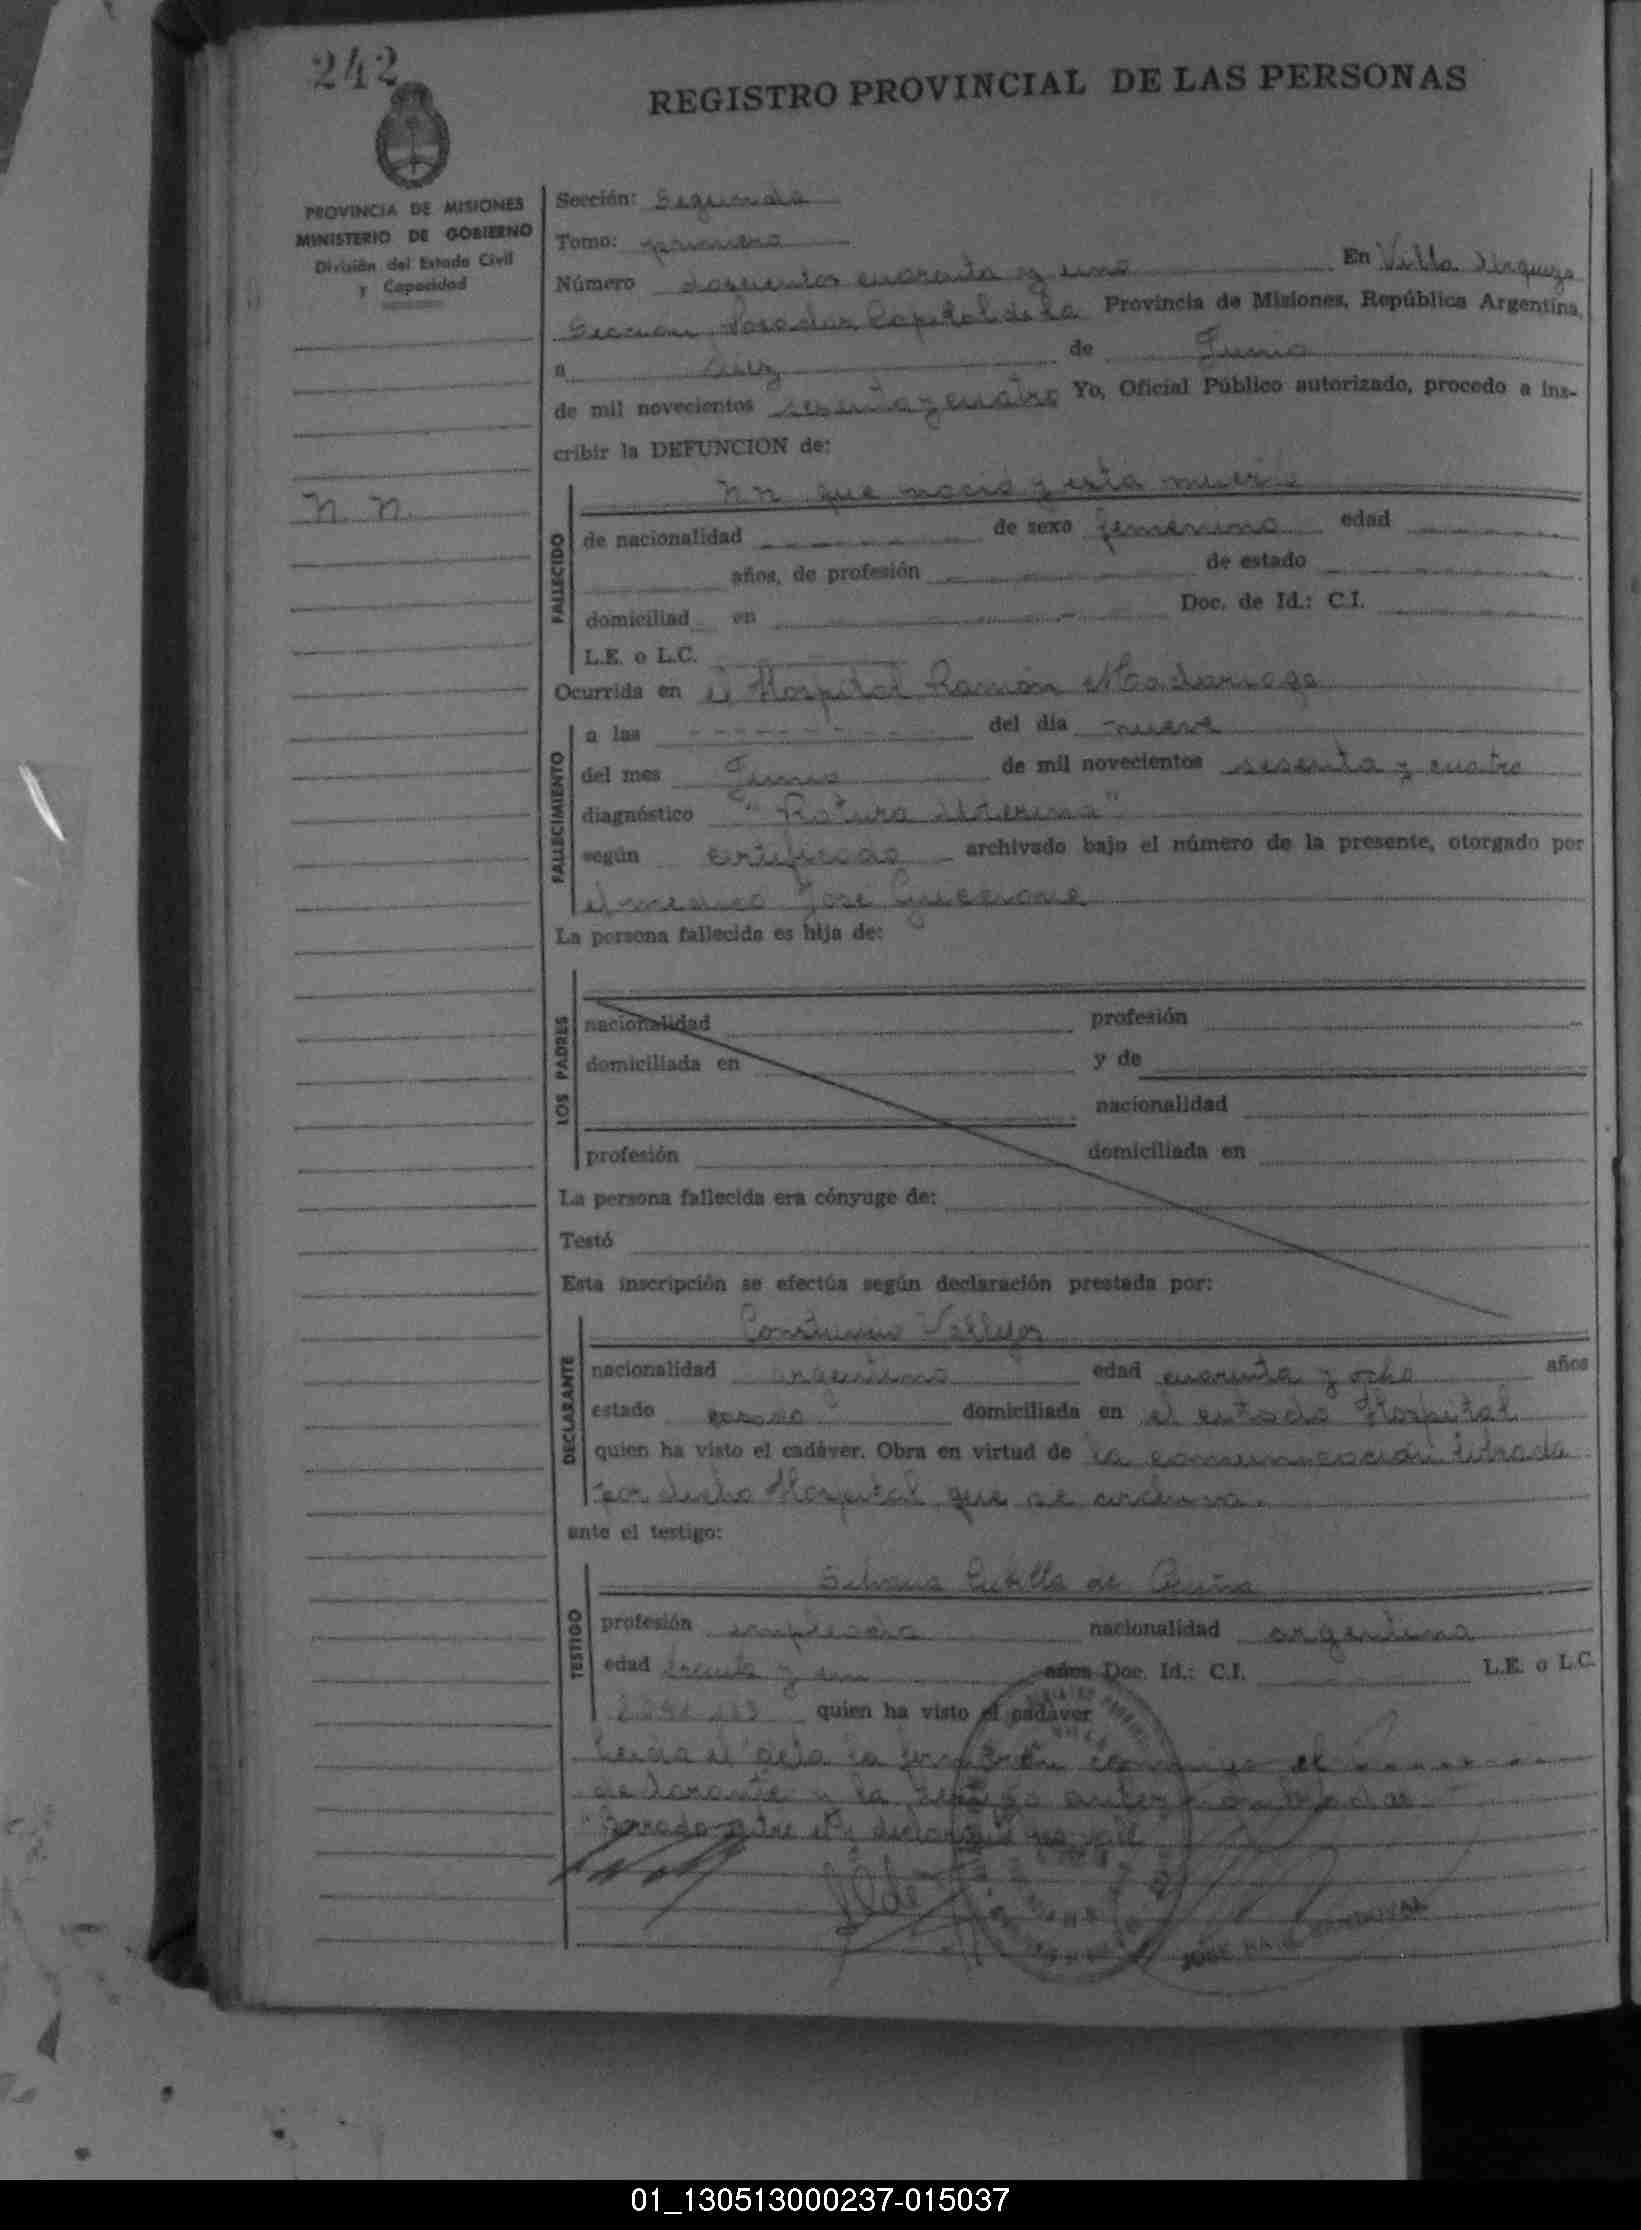 242
REGISTRO PROVINCIAL DE LAS PERSONAS
PROVINCIA DE MISIONES
MINISTERIO DE GOBIERNO
División del Estado Civil
y Capacidad
N. N.
Sección: Segunda
Tomo: primero
Número doscientos cuarenta y uno En Villa Urquiza
Sección, Posadas Capital de la Provincia de Misiones, República Argentina,
a diez de Junio
de mil novecientos sesenta y cuatro Yo, Oficial Público autorizado, procedo a ins-
cribir la DEFUNCION de:
FALLECIDO
NN que nació y está muerta
de nacionalidad de sexo femenino edad
años, de profesión de estado
domiciliad en Doc. de Id.: C.I.
L.E. o L.C.
Ocurrida en el Hospital Ramón Madariaga
FALLECIMIENTO
a las del día nueve
del mes Junio de mil novecientos sesenta y cuatro
diagnóstico "Rotura Uterina"
según certificado archivado bajo el número de la presente, otorgado por
el medico José Guccione
La persona fallecida es hija de:
LOS PADRES
nacionalidad profesión
domiciliada en y de
nacionalidad
profesión domiciliada en
La persona fallecida era cónyuge de:
Testó
Esta inscripción se efectúa según declaración prestada por:
DECLARANTE
Vallejos
nacionalidad argentino edad cuarenta y ocho años
estado casado domiciliada en el citado Hospital
quien ha visto el cadáver. Obra en virtud de la comunicación librada
por dicho Hospital que se archiva.
ante el testigo:
TESTIGO
Silvana Cubilla de
profesión empleada nacionalidad argentina
edad treinta y un años Doc. Id.: C.I. L.E. o L.C.
quien ha visto el cadáver
Leida el acta la firmaron conmigo el
declarante y la testigo
JOSE SANDOVAL
01_130513000237-015037